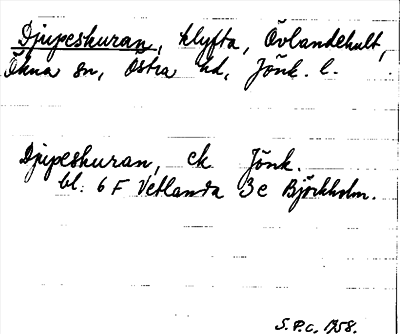 Djupeskuran, klyfta, Övlandehult,
Ökna sn, Östra hd, Jönk. l.
Djupeskuran, ek Jönk.
bl. 6 F Vetlanda 3 e Björkholm.
S.P.c. 1958.